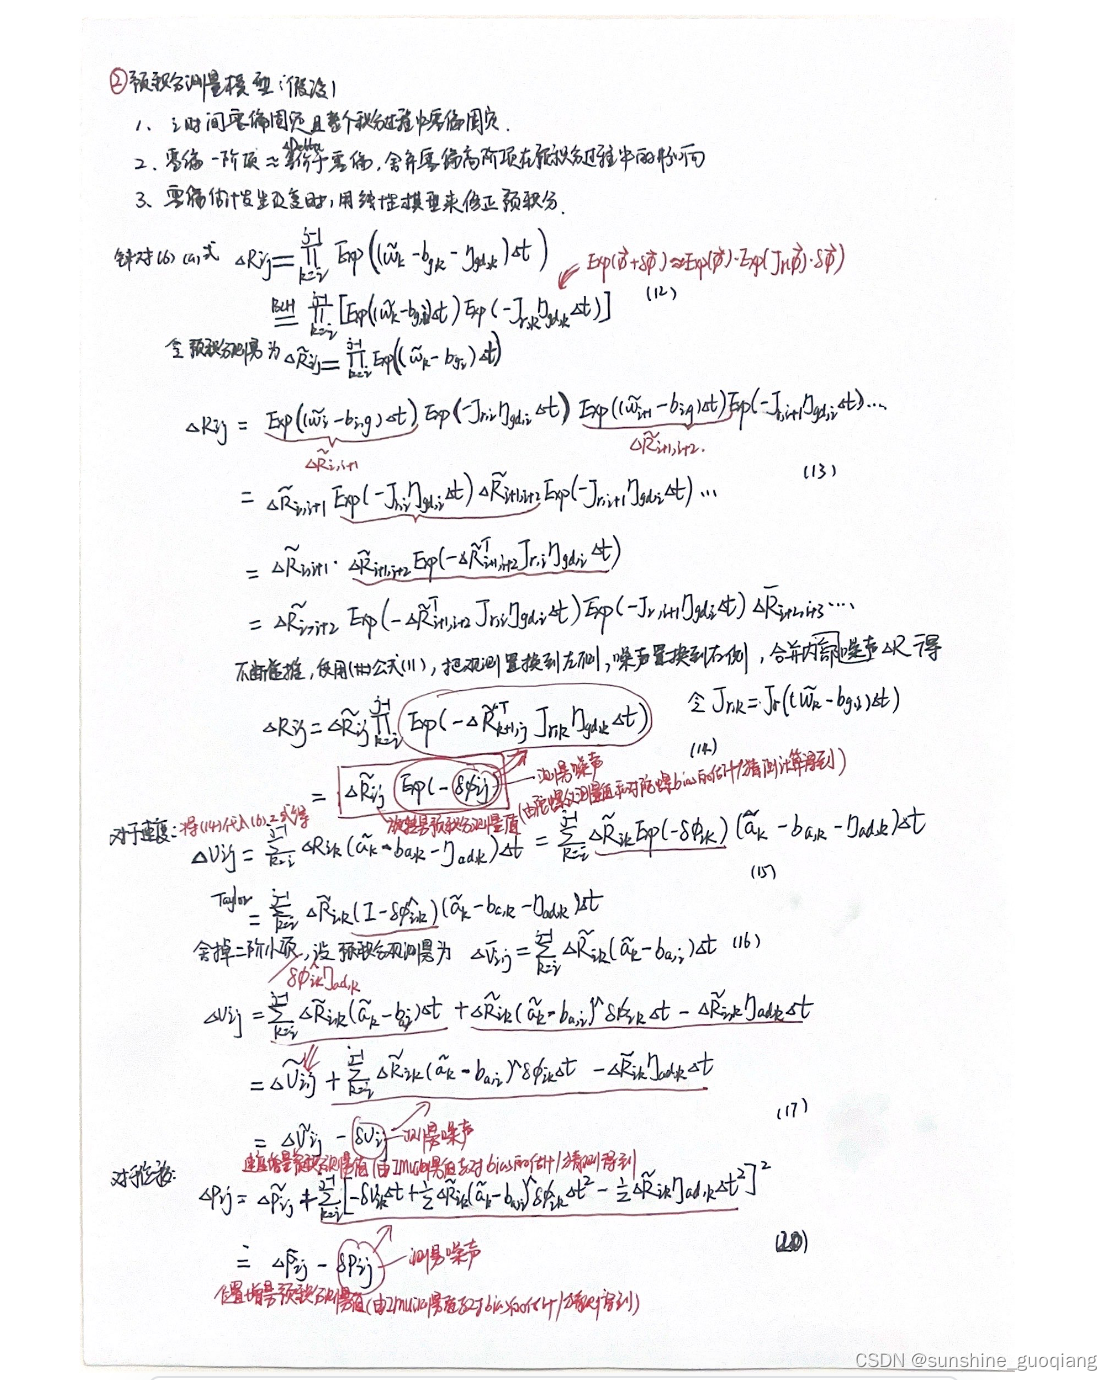 ②预积分测量模型(假设)
1、i时间零偏固定且整个积分过程中零偏固定.
2、零偏一阶项≈等价于零偏,舍弃零偏高阶项在预积分过程中的影响
3、零偏估计发生改变时,用线性模型来修正预积分.
针对(6)(a)式 ΔRij = ∏_{k=i}^{j-1} Exp((ω̃k - bg,k - ηgd,k)Δt)
Exp(φ⃗+δφ⃗)≈Exp(φ⃗)·Exp(Jr(φ⃗)·δφ⃗)
BCH = ∏_{k=i}^{j-1} [Exp((ω̃k - bg,i)Δt) Exp(-Jr,k ηgd,k Δt)] (12)
令预积分测量为 ΔR̃ij = ∏_{k=i}^{j-1} Exp((ω̃k - bg,i)Δt)
ΔRij = Exp((ω̃i - bi,g)Δt) Exp(-Jr,i ηgd,i Δt) Exp((ω̃i+1 - bi,g)Δt) Exp(-Jr,i+1 ηgd,i Δt)…
ΔR̃i,i+1 ΔR̃i+1,i+2.
= ΔR̃i,i+1 Exp(-Jr,i ηgd,i Δt) ΔR̃i+1,i+2 Exp(-Jr,i+1 ηgd,i Δt) … (13)
= ΔR̃i,i+1 · ΔR̃i+1,i+2 Exp(-ΔR̃ᵀi+1,i+2 Jr,i ηgd,i Δt)
= ΔR̃i,i+2 Exp(-ΔR̃ᵀi+1,i+2 Jr,i ηgd,i Δt) Exp(-Jr,i+1 ηgd,i Δt) ΔR̄i+2,i+3 …
不断递推,使用公式(11),把观测置换到左侧,噪声置换到右侧,合并内部噪声ΔR可得
ΔRij = ΔR̃ij ∏_{k=i}^{j-1} Exp(-ΔR̃ᵀk+1,j Jr,k ηgd,k Δt) 令 Jr,k = Jr((ω̃k - bg,i)Δt)
(14)
= ΔR̃ij Exp(-δφij) 测量噪声
旋转量预积分测量值(由陀螺仪测量值和对陀螺bias的估计/猜测计算得到)
对于速度:将(14)代入(6).2式得
ΔVij = ∑_{k=i}^{j-1} ΔRik(ãk - ba,k - ηad,k)Δt = ∑_{k=i}^{j-1} ΔR̃ik Exp(-δφik)(ãk - ba,k - ηad,k)Δt
(15)
Taylor = ∑_{k=i}^{j-1} ΔR̃ik(I - δφ^ik)(ãk - ba,k - ηad,k)Δt
舍掉二阶小项,设预积分观测量为 ΔṼij = ∑_{k=i}^{j-1} ΔR̃ik(ãk - ba,i)Δt (16)
δφ^ik ηad,k
ΔVij = ∑_{k=i}^{j-1} ΔR̃ik(ãk - ba,i)Δt + ΔR̃ik(ãk - ba,i)^δφik Δt - ΔR̃ik ηad,k Δt
= ΔṼij + ∑_{k=i}^{j-1} ΔR̃ik(ãk - ba,i)^δφik Δt - ΔR̃ik ηad,k Δt
(17)
= ΔṼij - δVij 测量噪声
速度增量预积分测量值(由Imu测量值及对bias的估计/猜测得到)
对于位移:
ΔPij = ΔP̃ij + ∑_{k=i}^{j-1} [-δVik Δt + ½ΔR̃ik(ãk - ba,i)^δφik Δt² - ½ΔR̃ik ηad,k Δt²]²
≐ ΔP̃ij - δPij 测量噪声 (20)
位置增量预积分测量值(由Imu测量值及对bias的估计/猜测得到)
CSDN @sunshine_guoqiang